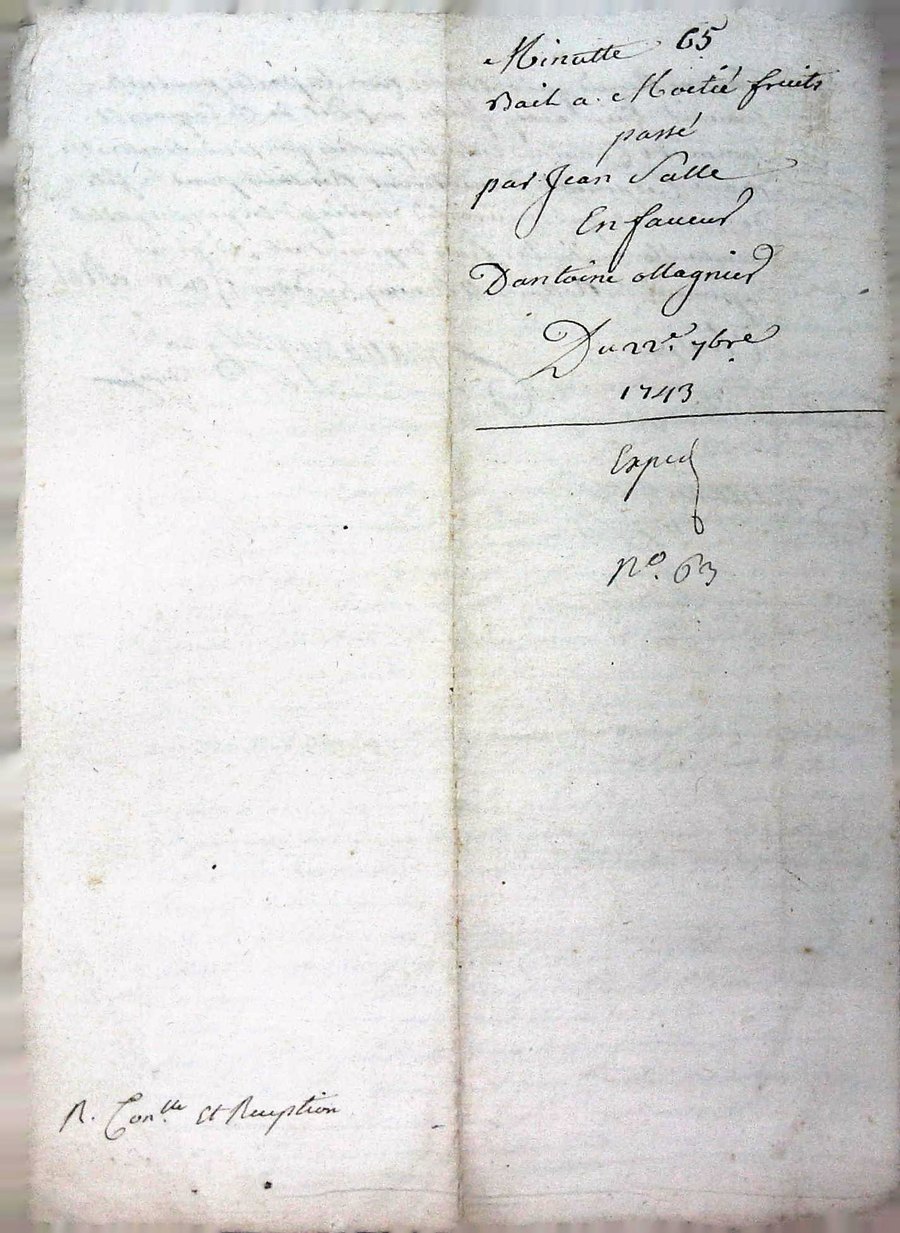 Minutte 65
Bail a Moitié fruits
passé
par Jean Salle
En faueur
Dantoine Magnier
Du 22e. 7bre
1743
Exped
No. 63
R. Conlle et Reception